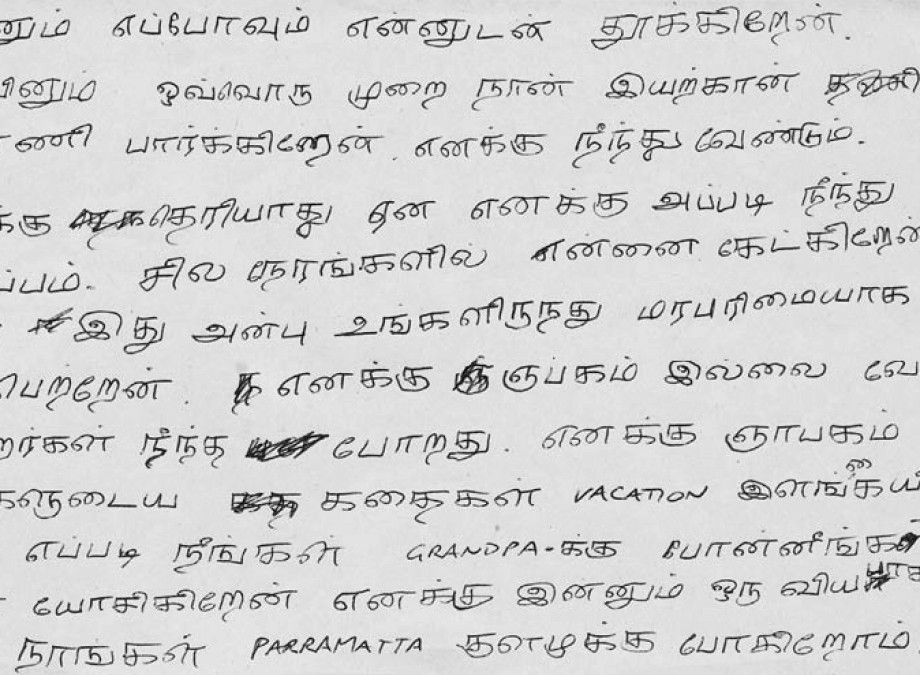 னும் எப்போவும் என்னுடன் தூக்கிறேன்.
யினும் ஒவ்வொரு முறை நான் இயற்கான்
ணணி பார்க்கிறேன். எனக்கு நீந்து வேண்டும்.
க்கு தெரியாது ஏன எனக்கு அப்படி நீந்து
ப்பம். சில நேரங்களில் என்னை கேட்கிறேன்
இது அன்பு உங்களிருந்து மரபுரிமையாக
பெற்றேன். எனக்கு ஞபகம் இல்லை வே
றர்கள் நீந்த போறது. எனக்கு ஞாயகம்
களுடைய கதைகள் VACATION இளங்கை
எப்படி நீங்கள் GRANDPA-க்கு போன்னீங்க
யோசிகிறேன் எனக்கு இன்னும் ஒரு விய
நாங்கள் PARRAMATTA குளமுக்கு போகிறோம்.